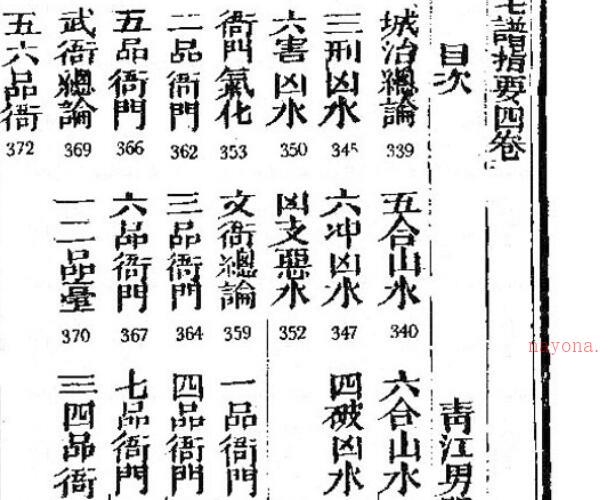 譜指要四卷
目次
青江男
城治總論 339
五合山水 340
六合山水
三刑凶水 345
六冲凶水 347
四破凶水
六害凶水 350
凶支惡水 352
衙門氣化 353
文衙總論 359
一品衙門
二品衙門 362
三品衙門 364
四品衙門
五品衙門 366
六品衙門 367
七品衙門
武衙總論 369
一二品臺 370
三四品衙
五六品衙 372
nayona.